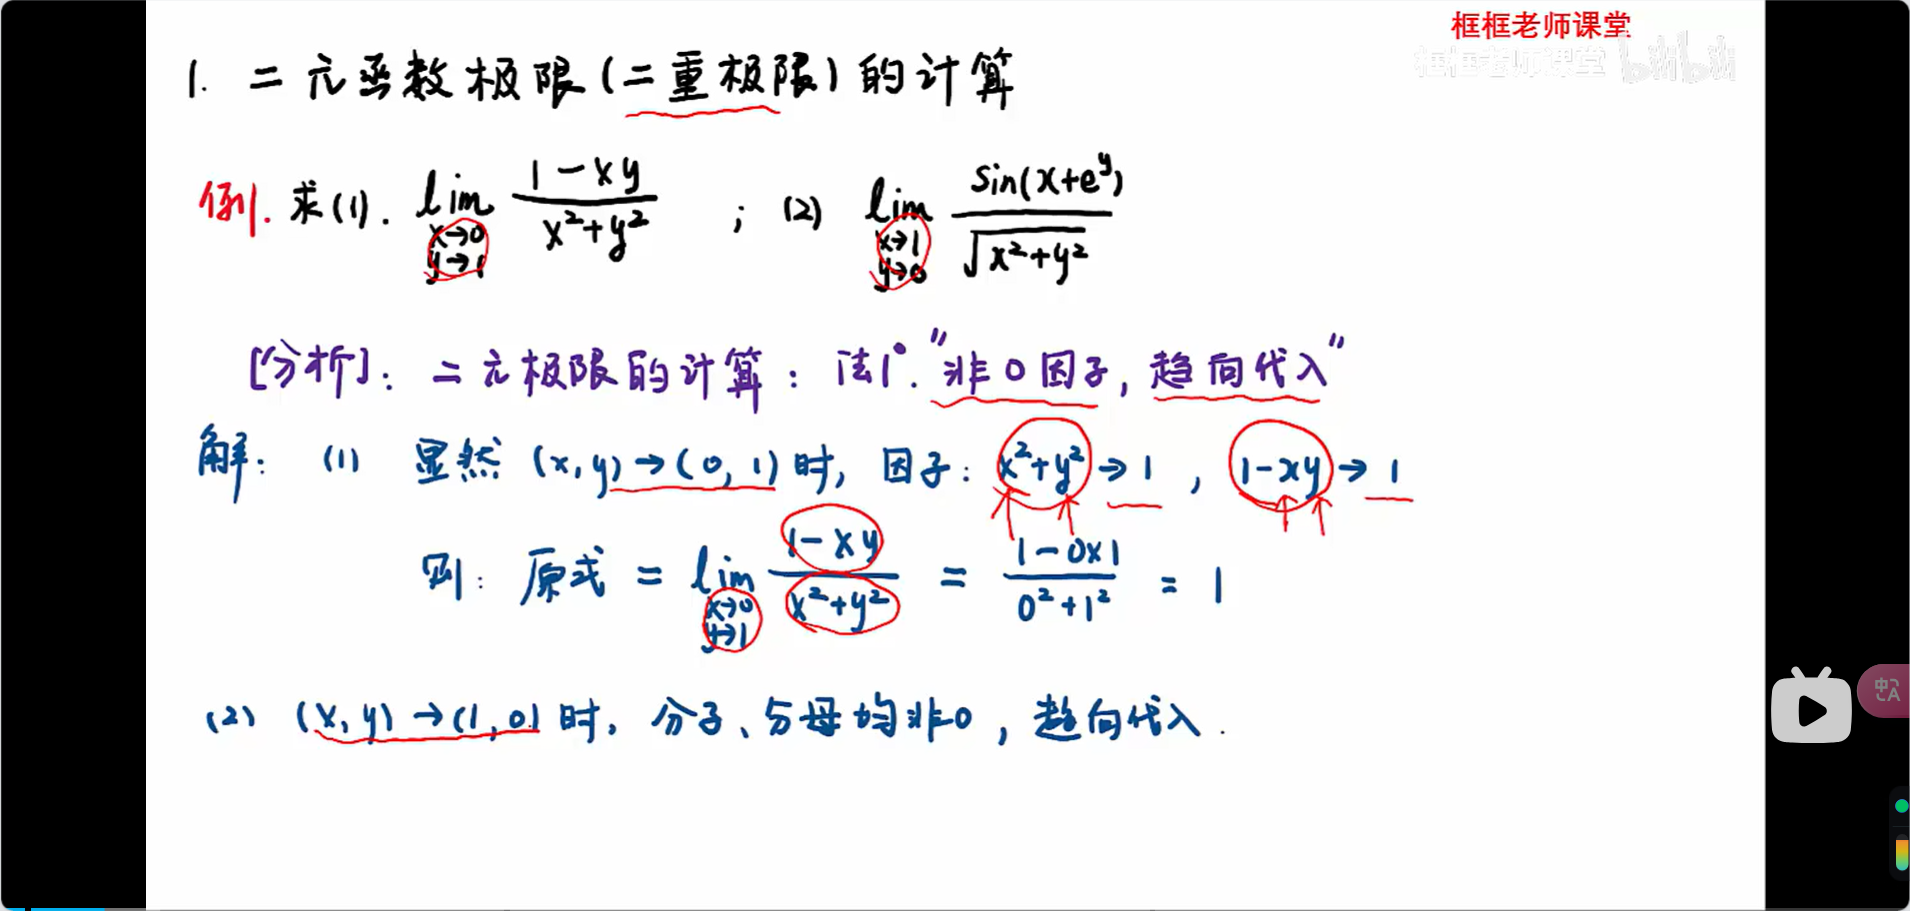 框框老师课堂
框框老师课堂 bilibili
1. 二元函数极限(二重极限)的计算
例. 求(1). lim x→0 y→1 (1-xy)/(x²+y²) ; (2) lim x→1 y→0 sin(x+e^y)/√(x²+y²)
[分析]: 二元极限的计算: 法1°. "非0因子, 趋向代入"
解: (1) 显然 (x,y)→(0,1)时, 因子: x²+y²→1, 1-xy→1
则: 原式 = lim x→0 y→1 (1-xy)/(x²+y²) = (1-0×1)/(0²+1²) = 1
(2) (x,y)→(1,0)时, 分子、分母均非0, 趋向代入.
中A